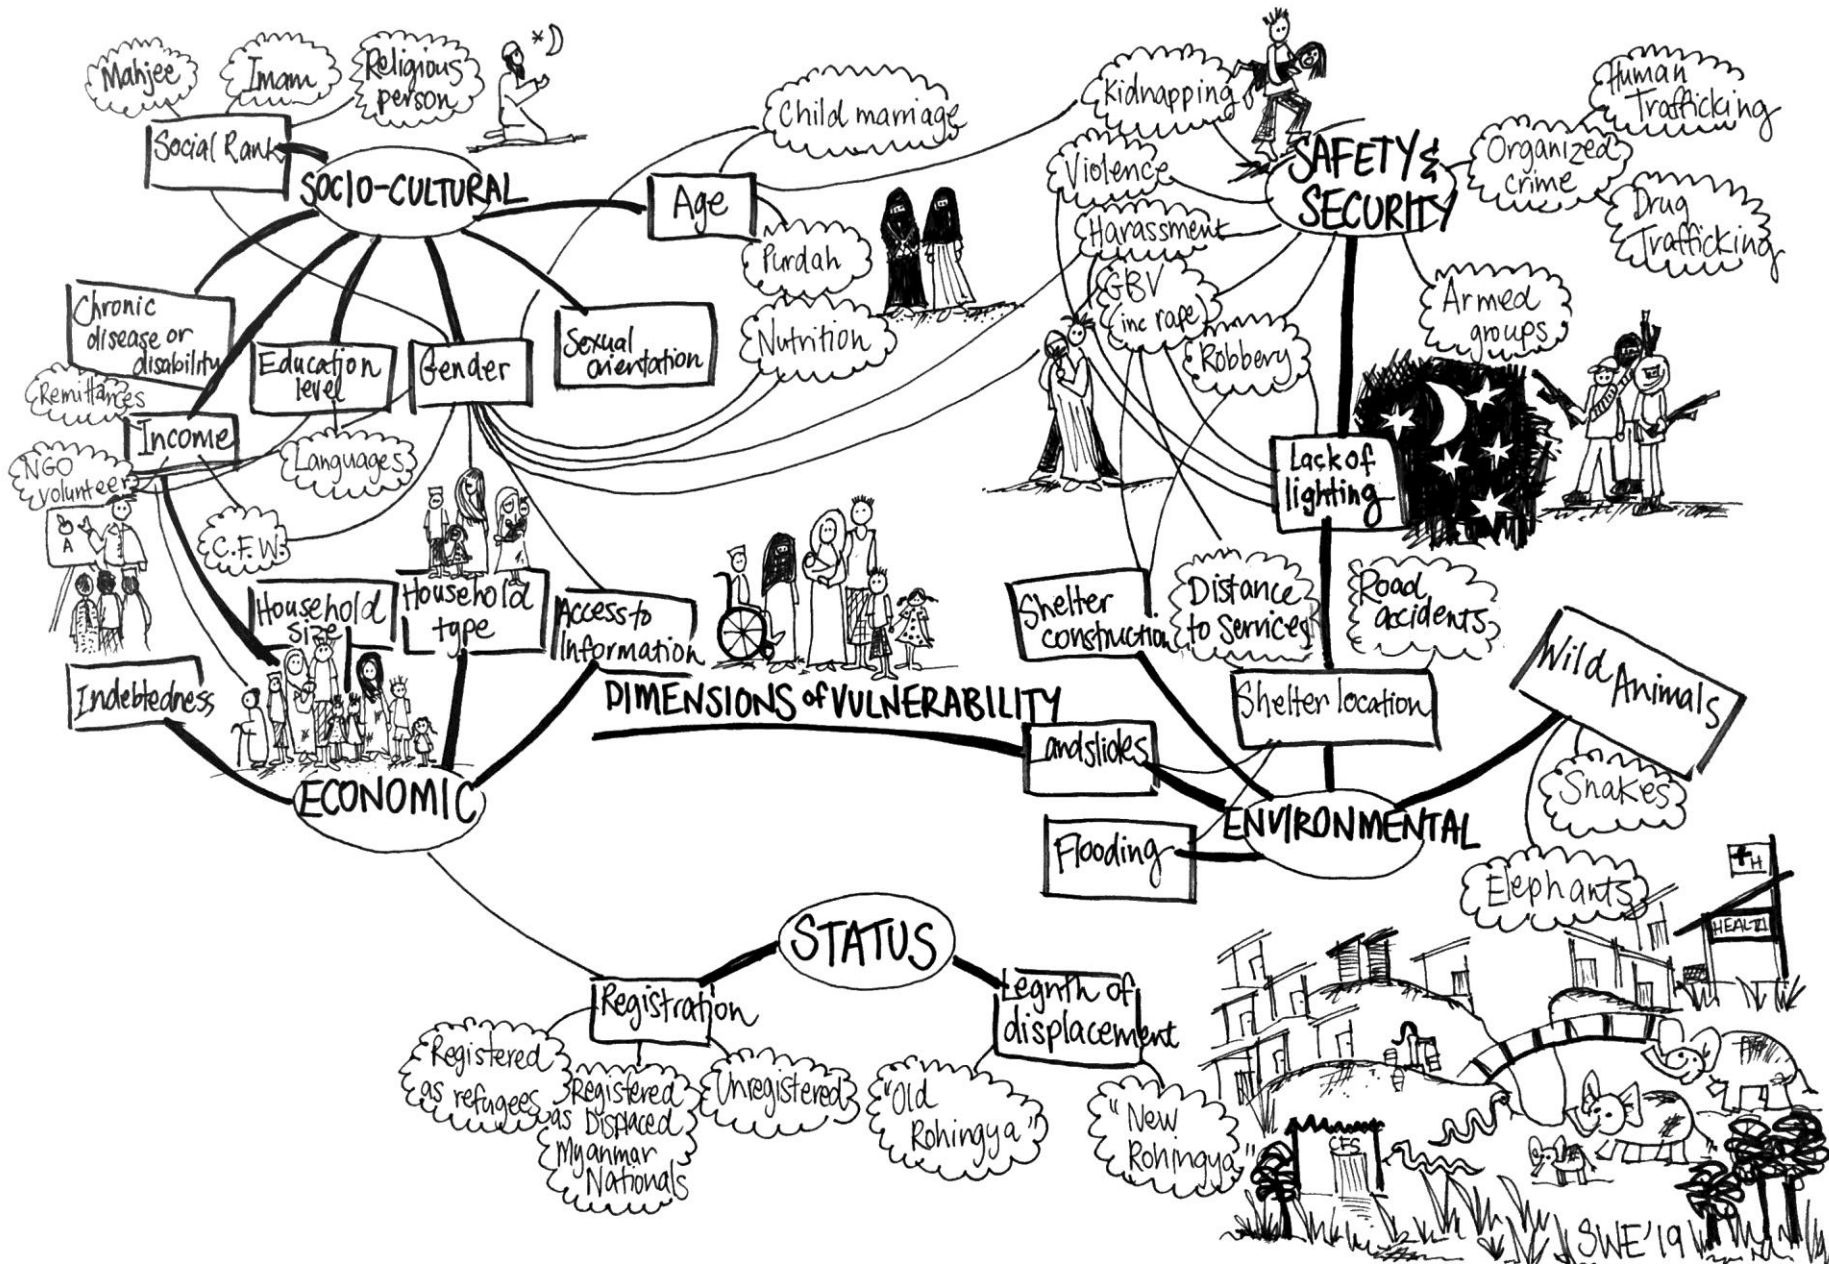 Mahjee
Imam
Religious
person
Social Rank
SOCIO-CULTURAL
Age
Child marriage
Purdah
Nutrition
Chronic
disease or
disability
Education
level
Gender
Sexual
orientation
Remittances
Income
Languages
NGO
volunteer
A
C.F.W.
Household
size
Household
type
Access to
Information
Indebtedness
ECONOMIC
DIMENSIONS of VULNERABILITY
Kidnapping
Violence
Harassment
GBV
inc rape
Robbery
SAFETY &
SECURITY
Organized
crime
Human
Trafficking
Drug
Trafficking
Armed
groups
Lack of
lighting
Shelter
construction
Distance
to Services
Road
accidents
Shelter location
Wild Animals
Snakes
Elephants
Landslides
Flooding
ENVIRONMENTAL
STATUS
Registration
Registered
as refugees
Registered
as Displaced
Myanmar
Nationals
Unregistered
Legnth of
displacement
"Old
Rohingya"
"New
Rohingya"
H
HEALTH
CFS
SWE'19